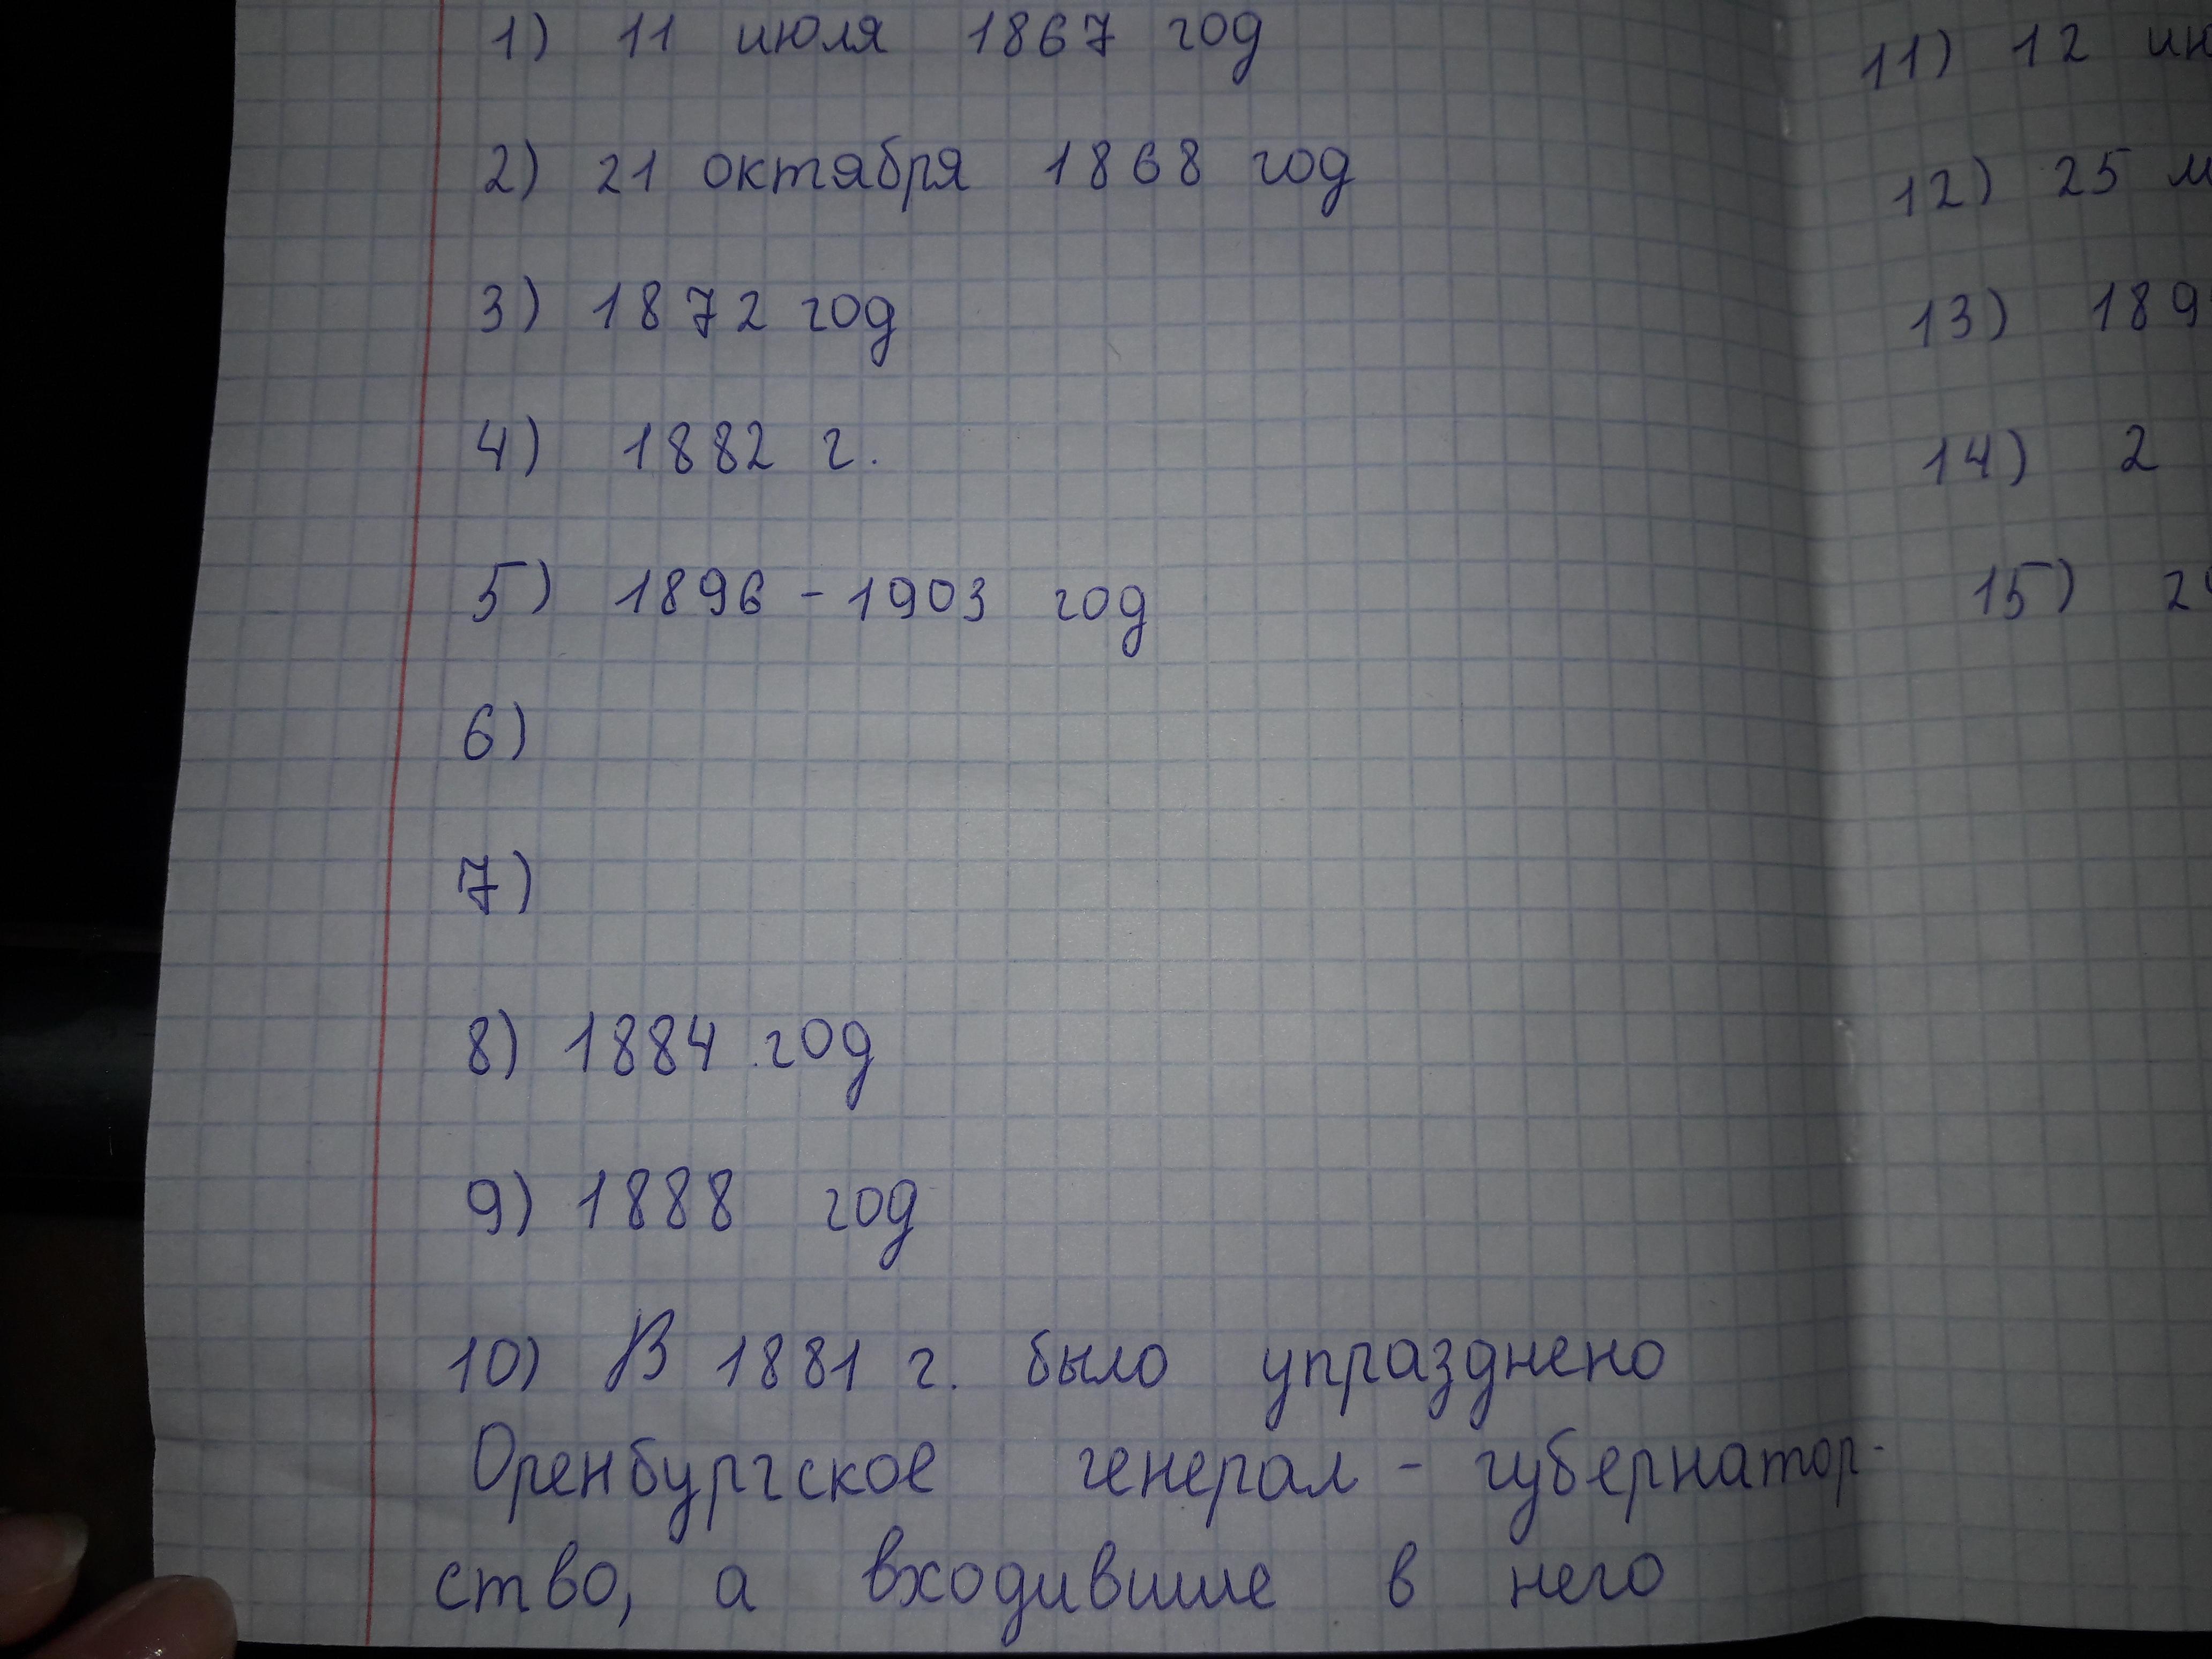 1) 11 июля 1867 год
2) 21 октября 1868 год
3) 1872 год
4) 1882 г.
5) 1896 - 1903 год
6)
7)
8) 1884 год
9) 1888 год
10) В 1881 г. было упразднено
Оренбургское генерал - губернатор-
ство, а входившие в него
11) 12
12) 25
13) 189
14) 2
15) 2